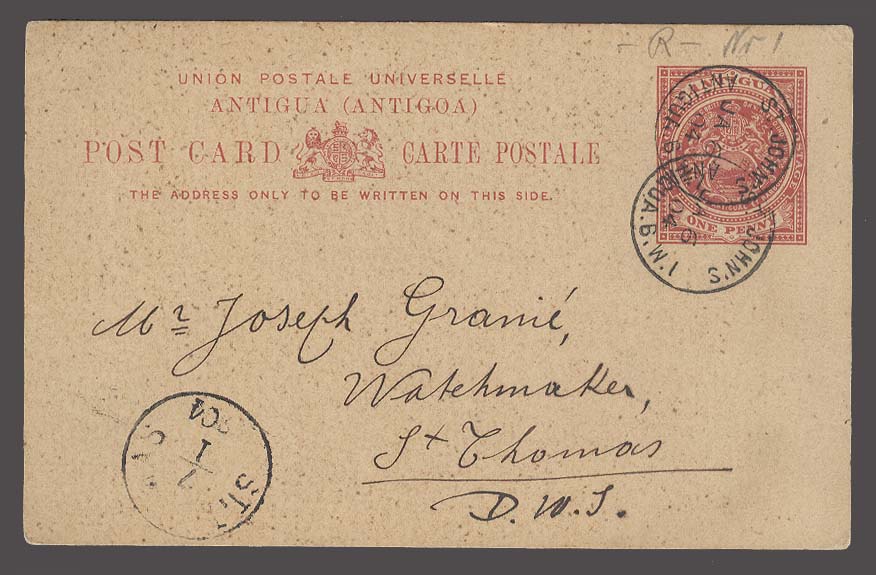 - R - Nr 1
UNION POSTALE UNIVERSELLE
ANTIGUA (ANTIGOA)
POST CARD CARTE POSTALE
THE ADDRESS ONLY TO BE WRITTEN ON THIS SIDE.
ANTIGUA
POSTAGE
ONE PENNY
ST JOHN'S
ANTIGUA.B
JOHN'S
Mr Joseph Granié,
Watchmaker,
St Thomas
D.W.I.
ST.